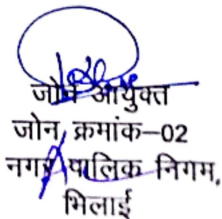 जोन आयुक्त
जोन क्रमांक-02
नगर पालिक निगम,
भिलाई